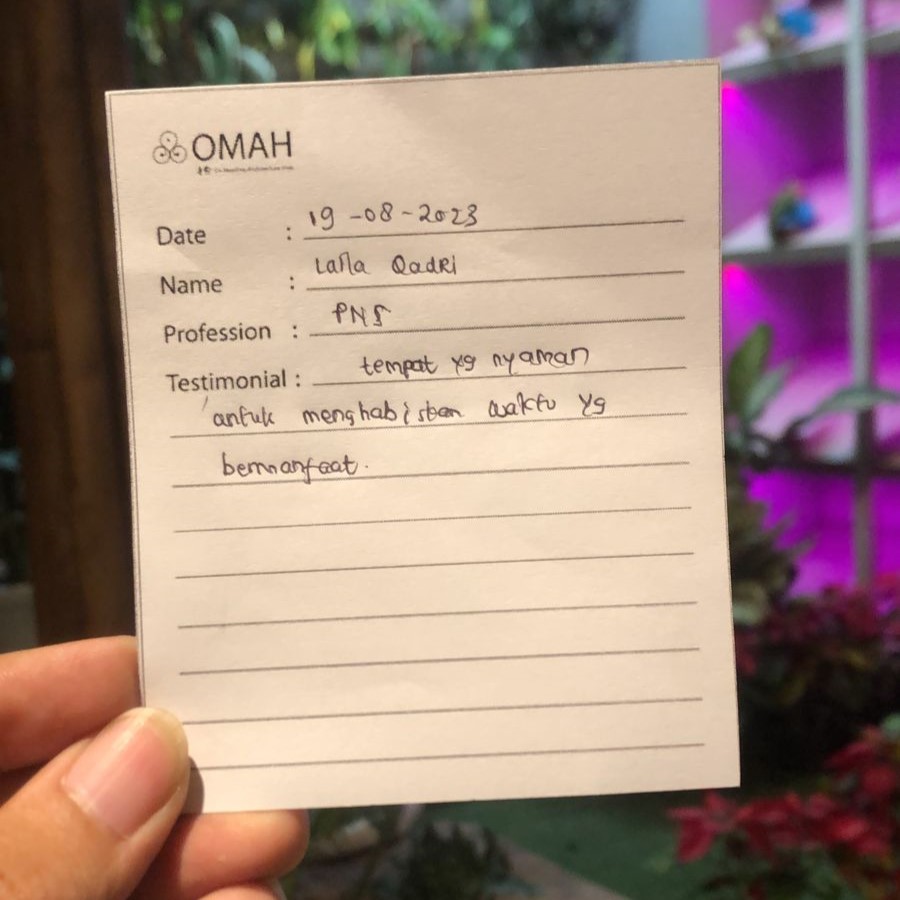 OMAH
Date : 19-08-2023
Name : Laila Qadri
Profession : PNS
Testimonial : tempat yg nyaman
untuk menghabiskan waktu yg
bermanfaat.